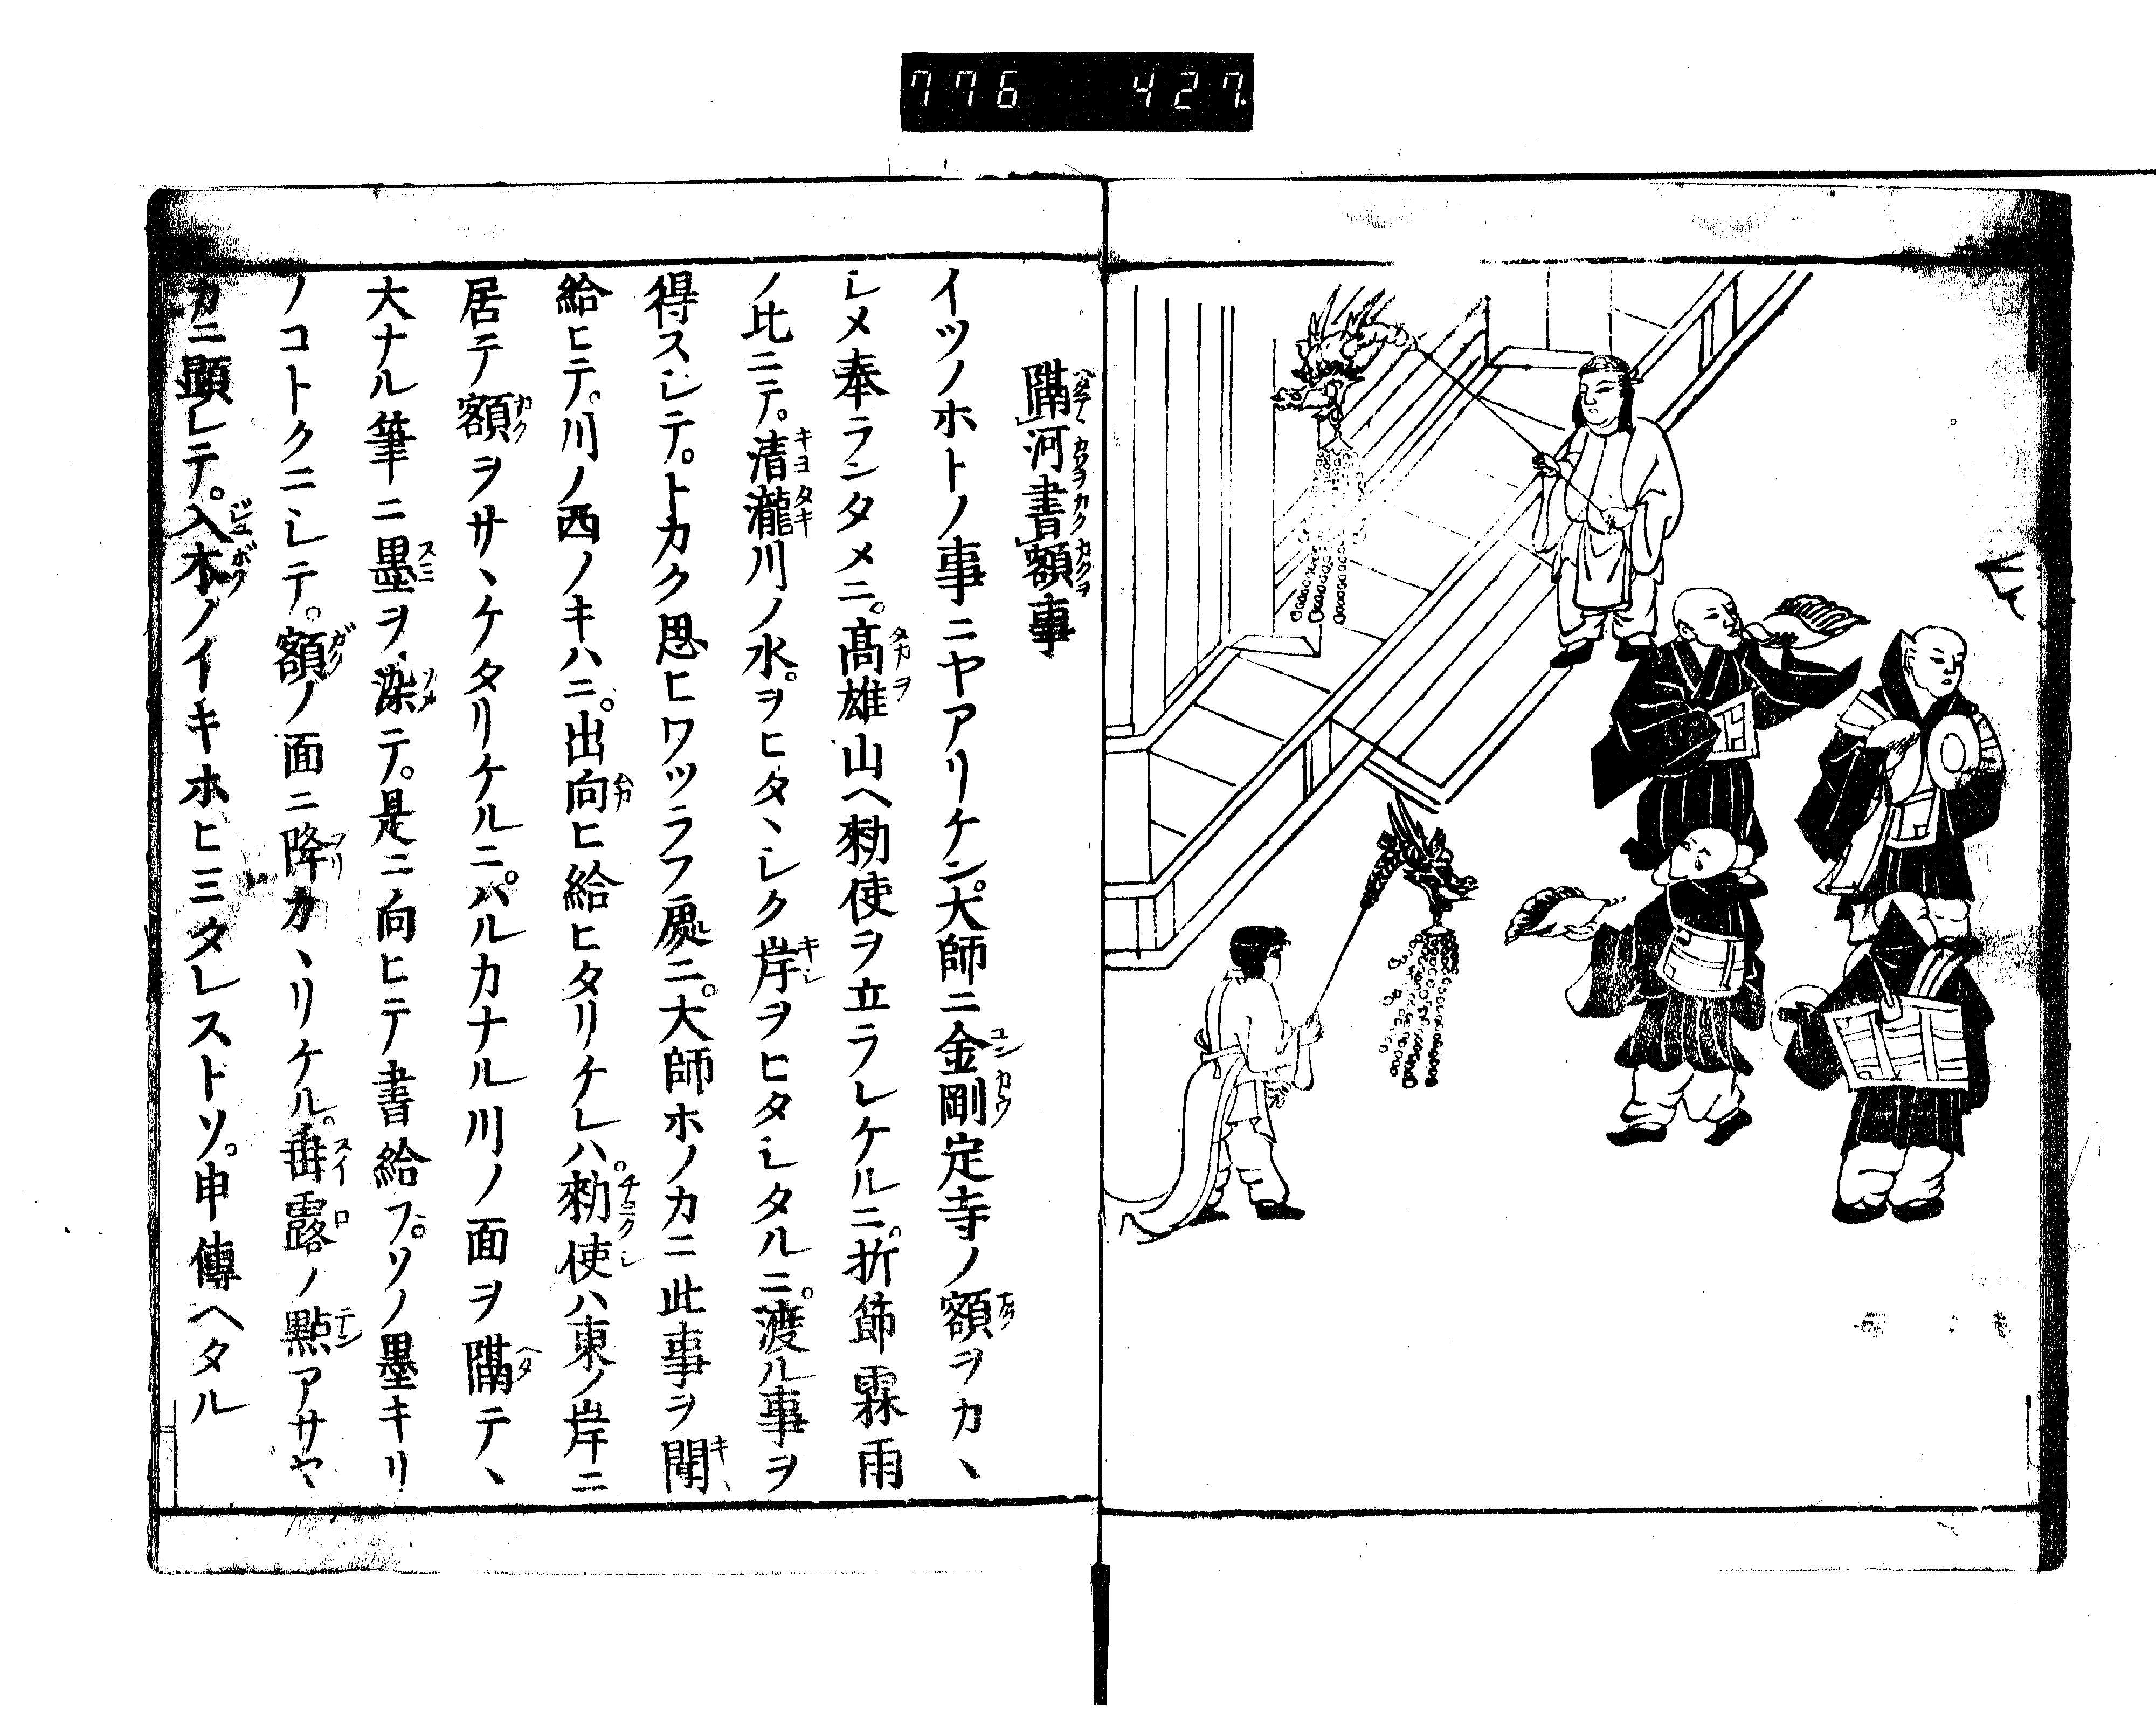 776 427
隔河書額事
イツノホトノ事ニヤアリケン。大師ニ金剛定寺ノ額ヲカヽ
シメ奉ランタメニ。髙雄山ヘ勅使ヲ立ラレケルニ。折節霖雨
ノ比ニテ。清瀧川ノ水。ヲヒタヽシク岸ヲヒタシタルニ。渡ル事ヲ
得スシテ。トカク思ヒワツラフ處ニ。大師ホノカニ此事ヲ聞
給ヒテ。川ノ西ノキハニ。出向ヒ給ヒタリケレハ。勅使ハ東ノ岸ニ
居テ額ヲサヽケタリケルニ。ハルカナル川ノ面ヲ隔テヽ
大ナル筆ニ墨ヲ染テ。是ニ向ヒテ書給フ。ソノ墨キリ
ノコトクニシテ。額ノ面ニ降カヽリケル。垂露ノ點アサヤ
カニ顕レテ。入木ノイキホヒミタレストソ。申傳ヘタル